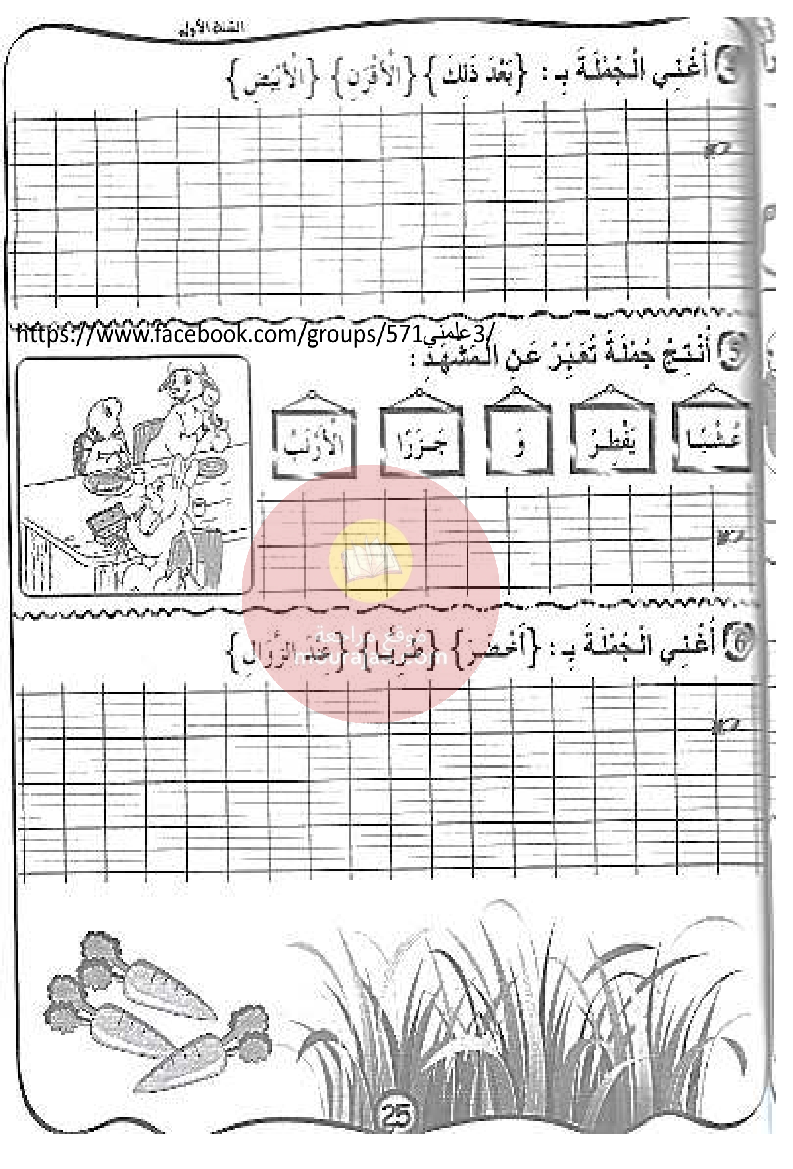 السّنة الأولى
أُغْنِي الْجُمْلَةَ بِـ : {بَعْدَ ذَلِكَ} {الْأَقْرَنِ} {الْأَبْيَضِ}
https://www.facebook.com/groups/571علمني3/
5 أُنْتِجُ جُمْلَةً تُعَبِّرُ عَنِ الْمَشْهَدِ :
عُشْبًا يَفْطِرُ وَ جَزَرًا الْأَرْنَبُ
6 أُغْنِي الْجُمْلَةَ بِـ : {أَخْضَرَ} {طَرِيًّا} {عِنْدَ الزَّوَالِ}
موقع مراجعة
mourajaa.com
25